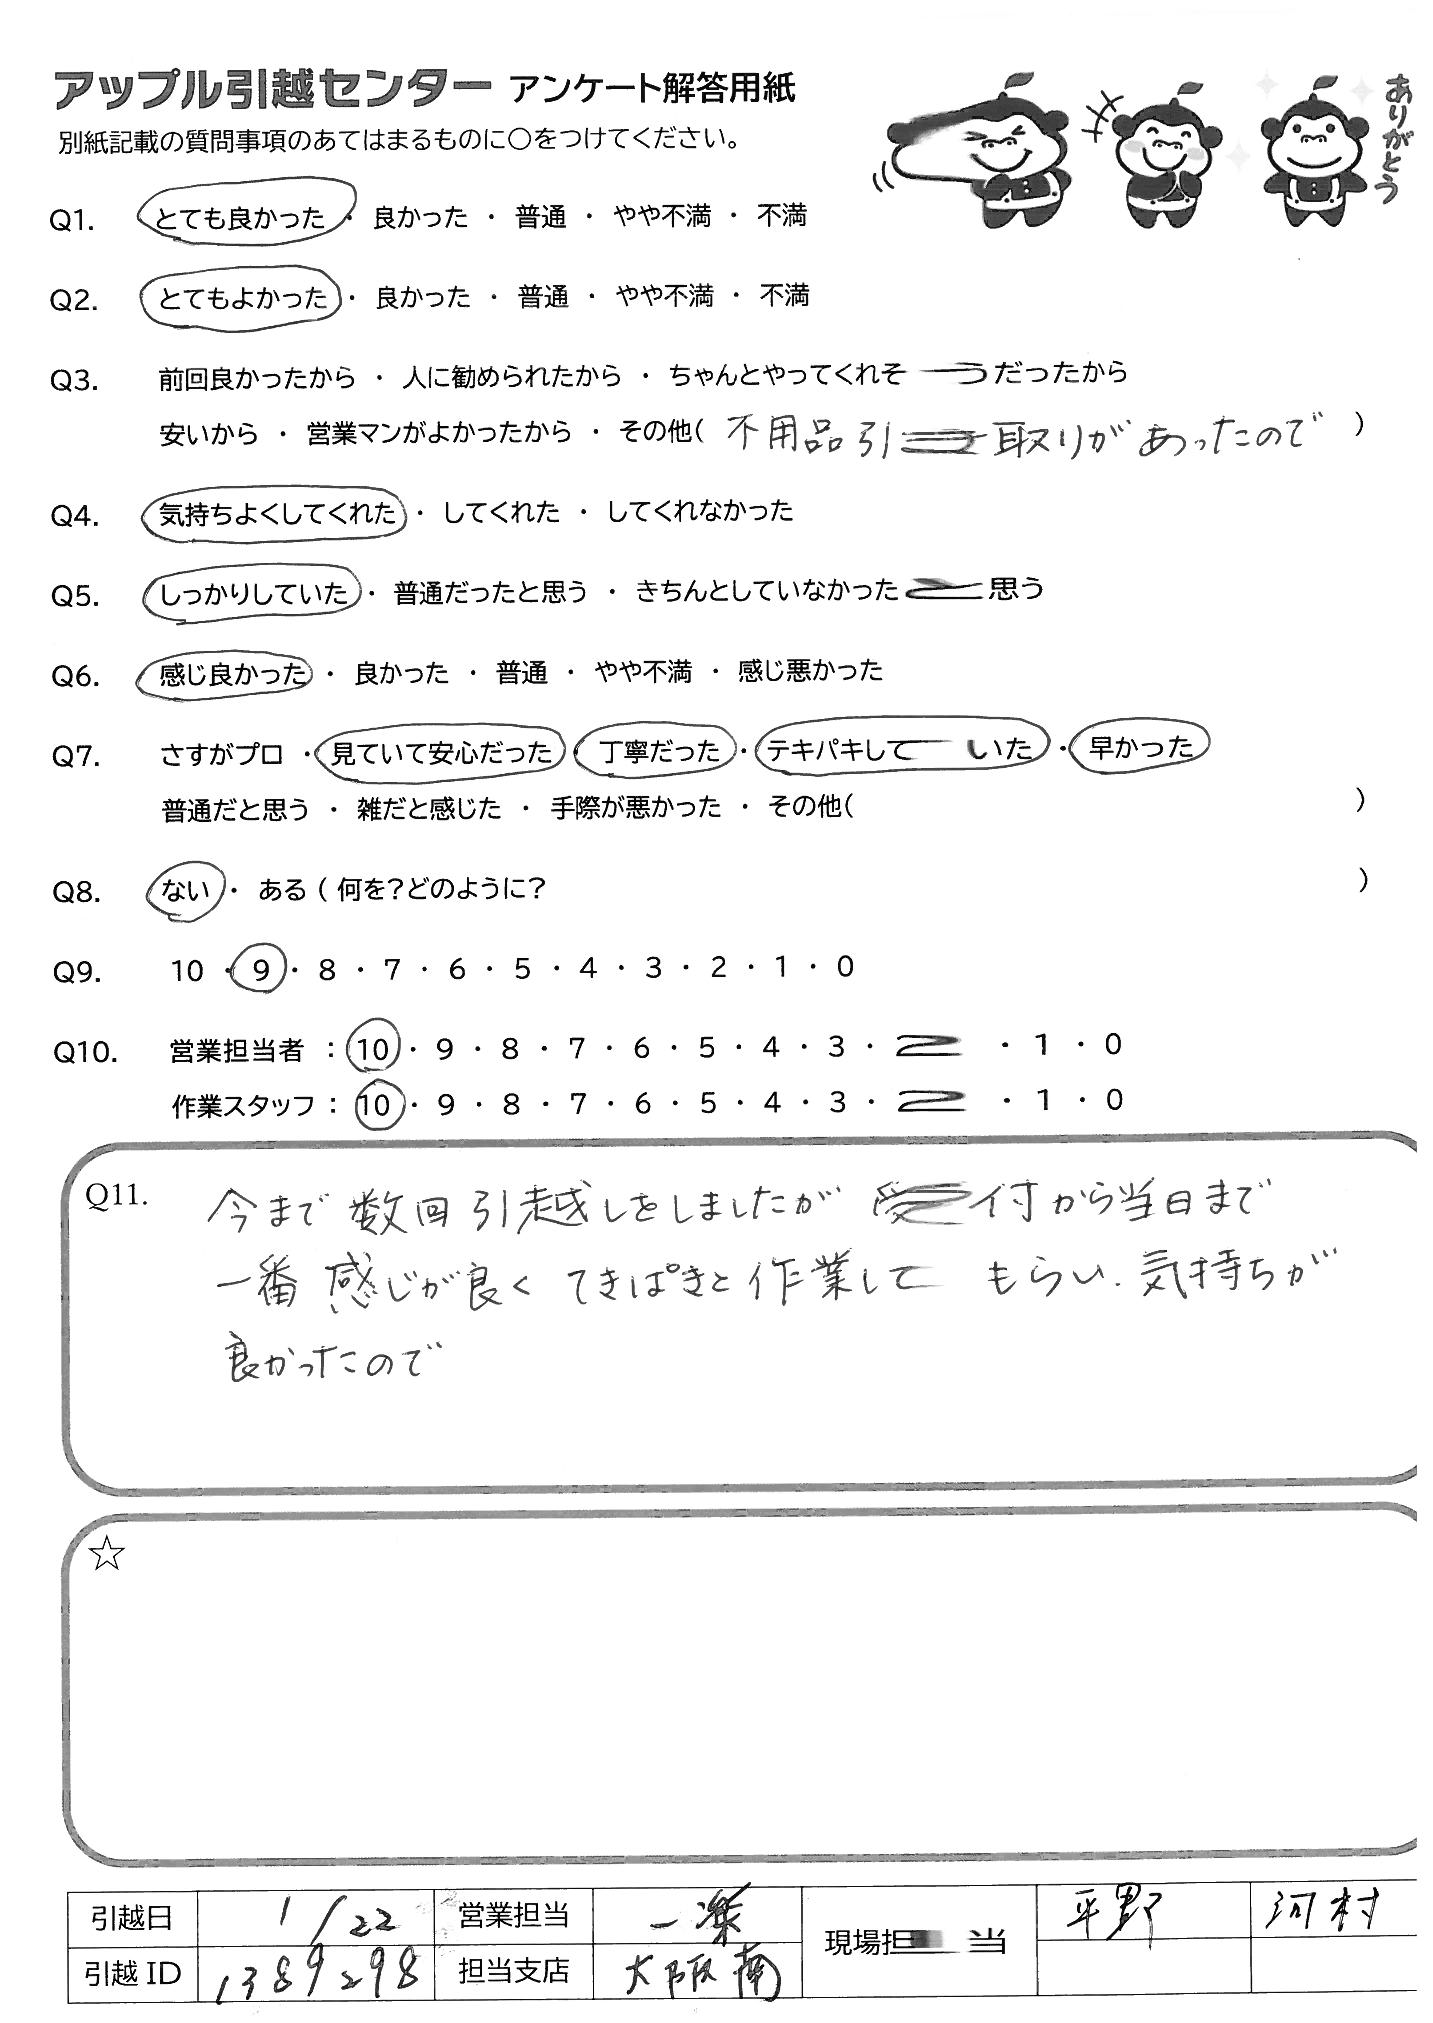 アップル引越センター アンケート解答用紙
ありがとう
別紙記載の質問事項のあてはまるものに○をつけてください。
Q1. とても良かった ・ 良かった ・ 普通 ・ やや不満 ・ 不満
Q2. とてもよかった ・ 良かった ・ 普通 ・ やや不満 ・ 不満
Q3. 前回良かったから ・ 人に勧められたから ・ ちゃんとやってくれそうだったから
安いから ・ 営業マンがよかったから ・ その他( 不用品引き取りがあったので )
Q4. 気持ちよくしてくれた ・ してくれた ・ してくれなかった
Q5. しっかりしていた ・ 普通だったと思う ・ きちんとしていなかったと思う
Q6. 感じ良かった ・ 良かった ・ 普通 ・ やや不満 ・ 感じ悪かった
Q7. さすがプロ ・ 見ていて安心だった ・ 丁寧だった ・ テキパキしていた ・ 早かった
普通だと思う ・ 雑だと感じた ・ 手際が悪かった ・ その他( )
Q8. ない ・ ある ( 何を?どのように? )
Q9. 10 ・ 9 ・ 8 ・ 7 ・ 6 ・ 5 ・ 4 ・ 3 ・ 2 ・ 1 ・ 0
Q10. 営業担当者 : 10 ・ 9 ・ 8 ・ 7 ・ 6 ・ 5 ・ 4 ・ 3 ・ 2 ・ 1 ・ 0
作業スタッフ : 10 ・ 9 ・ 8 ・ 7 ・ 6 ・ 5 ・ 4 ・ 3 ・ 2 ・ 1 ・ 0
Q11. 今まで数回引越しをしましたが 受付から当日まで
一番感じが良く てきぱきと作業して もらい、気持ちが
良かったので
☆
引越日 1/22 営業担当 一楽 現場担当 平野 河村
引越ID 1389298 担当支店 大阪南